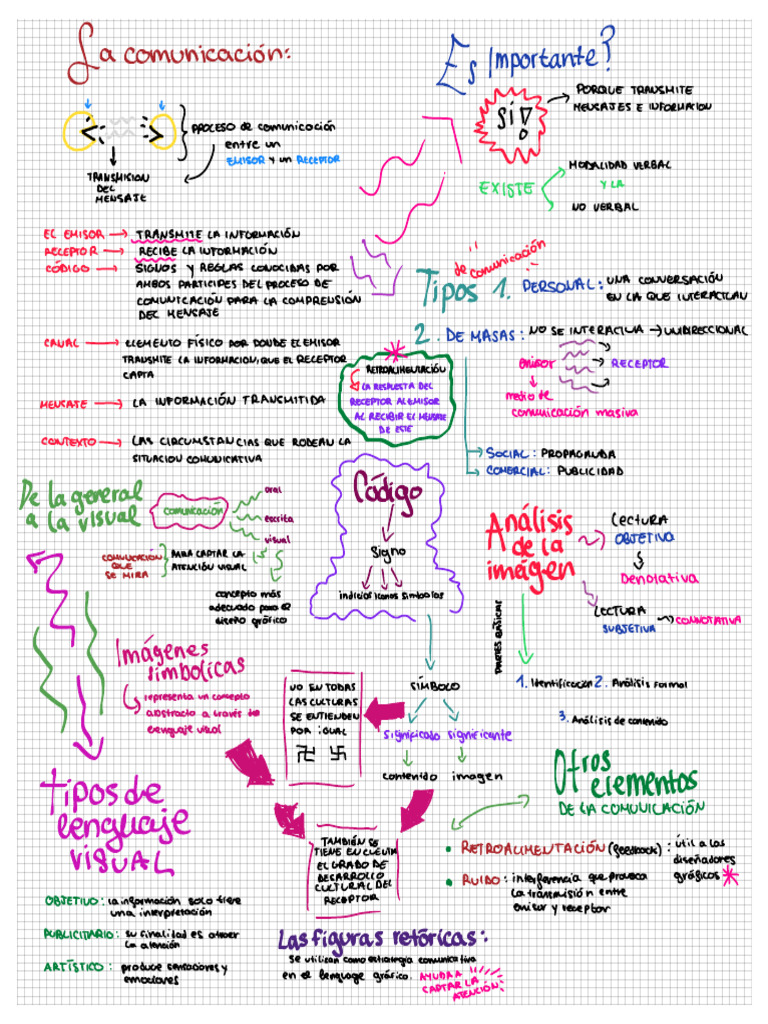 La comunicación:
PROCESO de comunicación
entre un
EMISOR y un RECEPTOR
TRANSMISION
DEL
MENSAJE
Es Importante?
SÍ!
PORQUE TRANSMITE
MENSAJES E INFORMACION
EXISTE
MODALIDAD VERBAL
Y LA
NO VERBAL
EL EMISOR → TRANSMITE LA INFORMACIÓN
RECEPTOR → RECIBE LA INFORMACIÓN
CÓDIGO → SIGNOS Y REGLAS CONOCIDAS POR
AMBOS PARTICIPES DEL PROCESO DE
COMUNICACIÓN PARA LA COMPRENSIÓN
DEL MENSAJE
CANAL → ELEMENTO FÍSICO POR DONDE EL EMISOR
TRANSMITE LA INFORMACION, QUE EL RECEPTOR
CAPTA
MENSAJE → LA INFORMACIÓN TRANSMITIDA
CONTEXTO → LAS CIRCUNSTANCIAS QUE RODEAN LA
SITUACION COMUNICATIVA
Tipos
de comunicación
1. PERSONAL: UNA CONVERSACIÓN
EN LA QUE INTERACTUAN
2. DE MASAS: NO SE INTERACTUA → UNIDIRECCIONAL
emisor
RECEPTOR
medio de
comunicación masiva
SOCIAL: PROPAGANDA
COMERCIAL: PUBLICIDAD
RETROALIMENTACIÓN
LA RESPUESTA DEL
RECEPTOR AL EMISOR
AL RECIBIR EL MENSAJE
DE ESTE
De la general
a la visual
COMUNICACIÓN
oral
escrita
visual
COMUNICACION
QUE
SE MIRA
PARA CAPTAR LA
ATENCIÓN VISUAL
concepto más
adecuado para el
diseño gráfico
Código
Signo
indicios iconos simbolos
SÍMBOLO
significado significante
contenido imagen
Análisis
de la
imágen
LECTURA
OBJETIVA
Denotativa
LECTURA
SUBJETIVA
CONNOTATIVA
PARTES BÁSICAS
1. Identificación 2. Análisis formal
3. Análisis de contenido
Imágenes
simbolicas
representa un concepto
abstracto a través de
lenguaje visual
NO EN TODAS
LAS CULTURAS
SE ENTIENDEN
POR IGUAL
卍 卐
TAMBIÉN SE
TIENE EN CUENTA
EL GRADO DE
DESARROLLO
CULTURAL DEL
RECEPTOR
Tipos de
lenguaje
VISUAL
OBJETIVO: la información solo tiene
una interpretación
PUBLICITARIO: su finalidad es atraer
la atención
ARTÍSTICO: produce sensaciones y
emociones
Otros
elementos
DE LA COMUNICACIÓN
• RETROALIMENTACIÓN (feedback): útil a los
diseñadores
gráficos
• RUIDO: interferencia que provoca
la transmisión entre
emisor y receptor
Las figuras retóricas:
Se utilizan como estrategia comunicativa
en el lenguage gráfico. AYUDA A
CAPTAR LA
ATENCIÓN